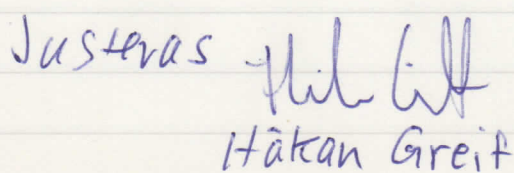 Justeras
Håkan Greif